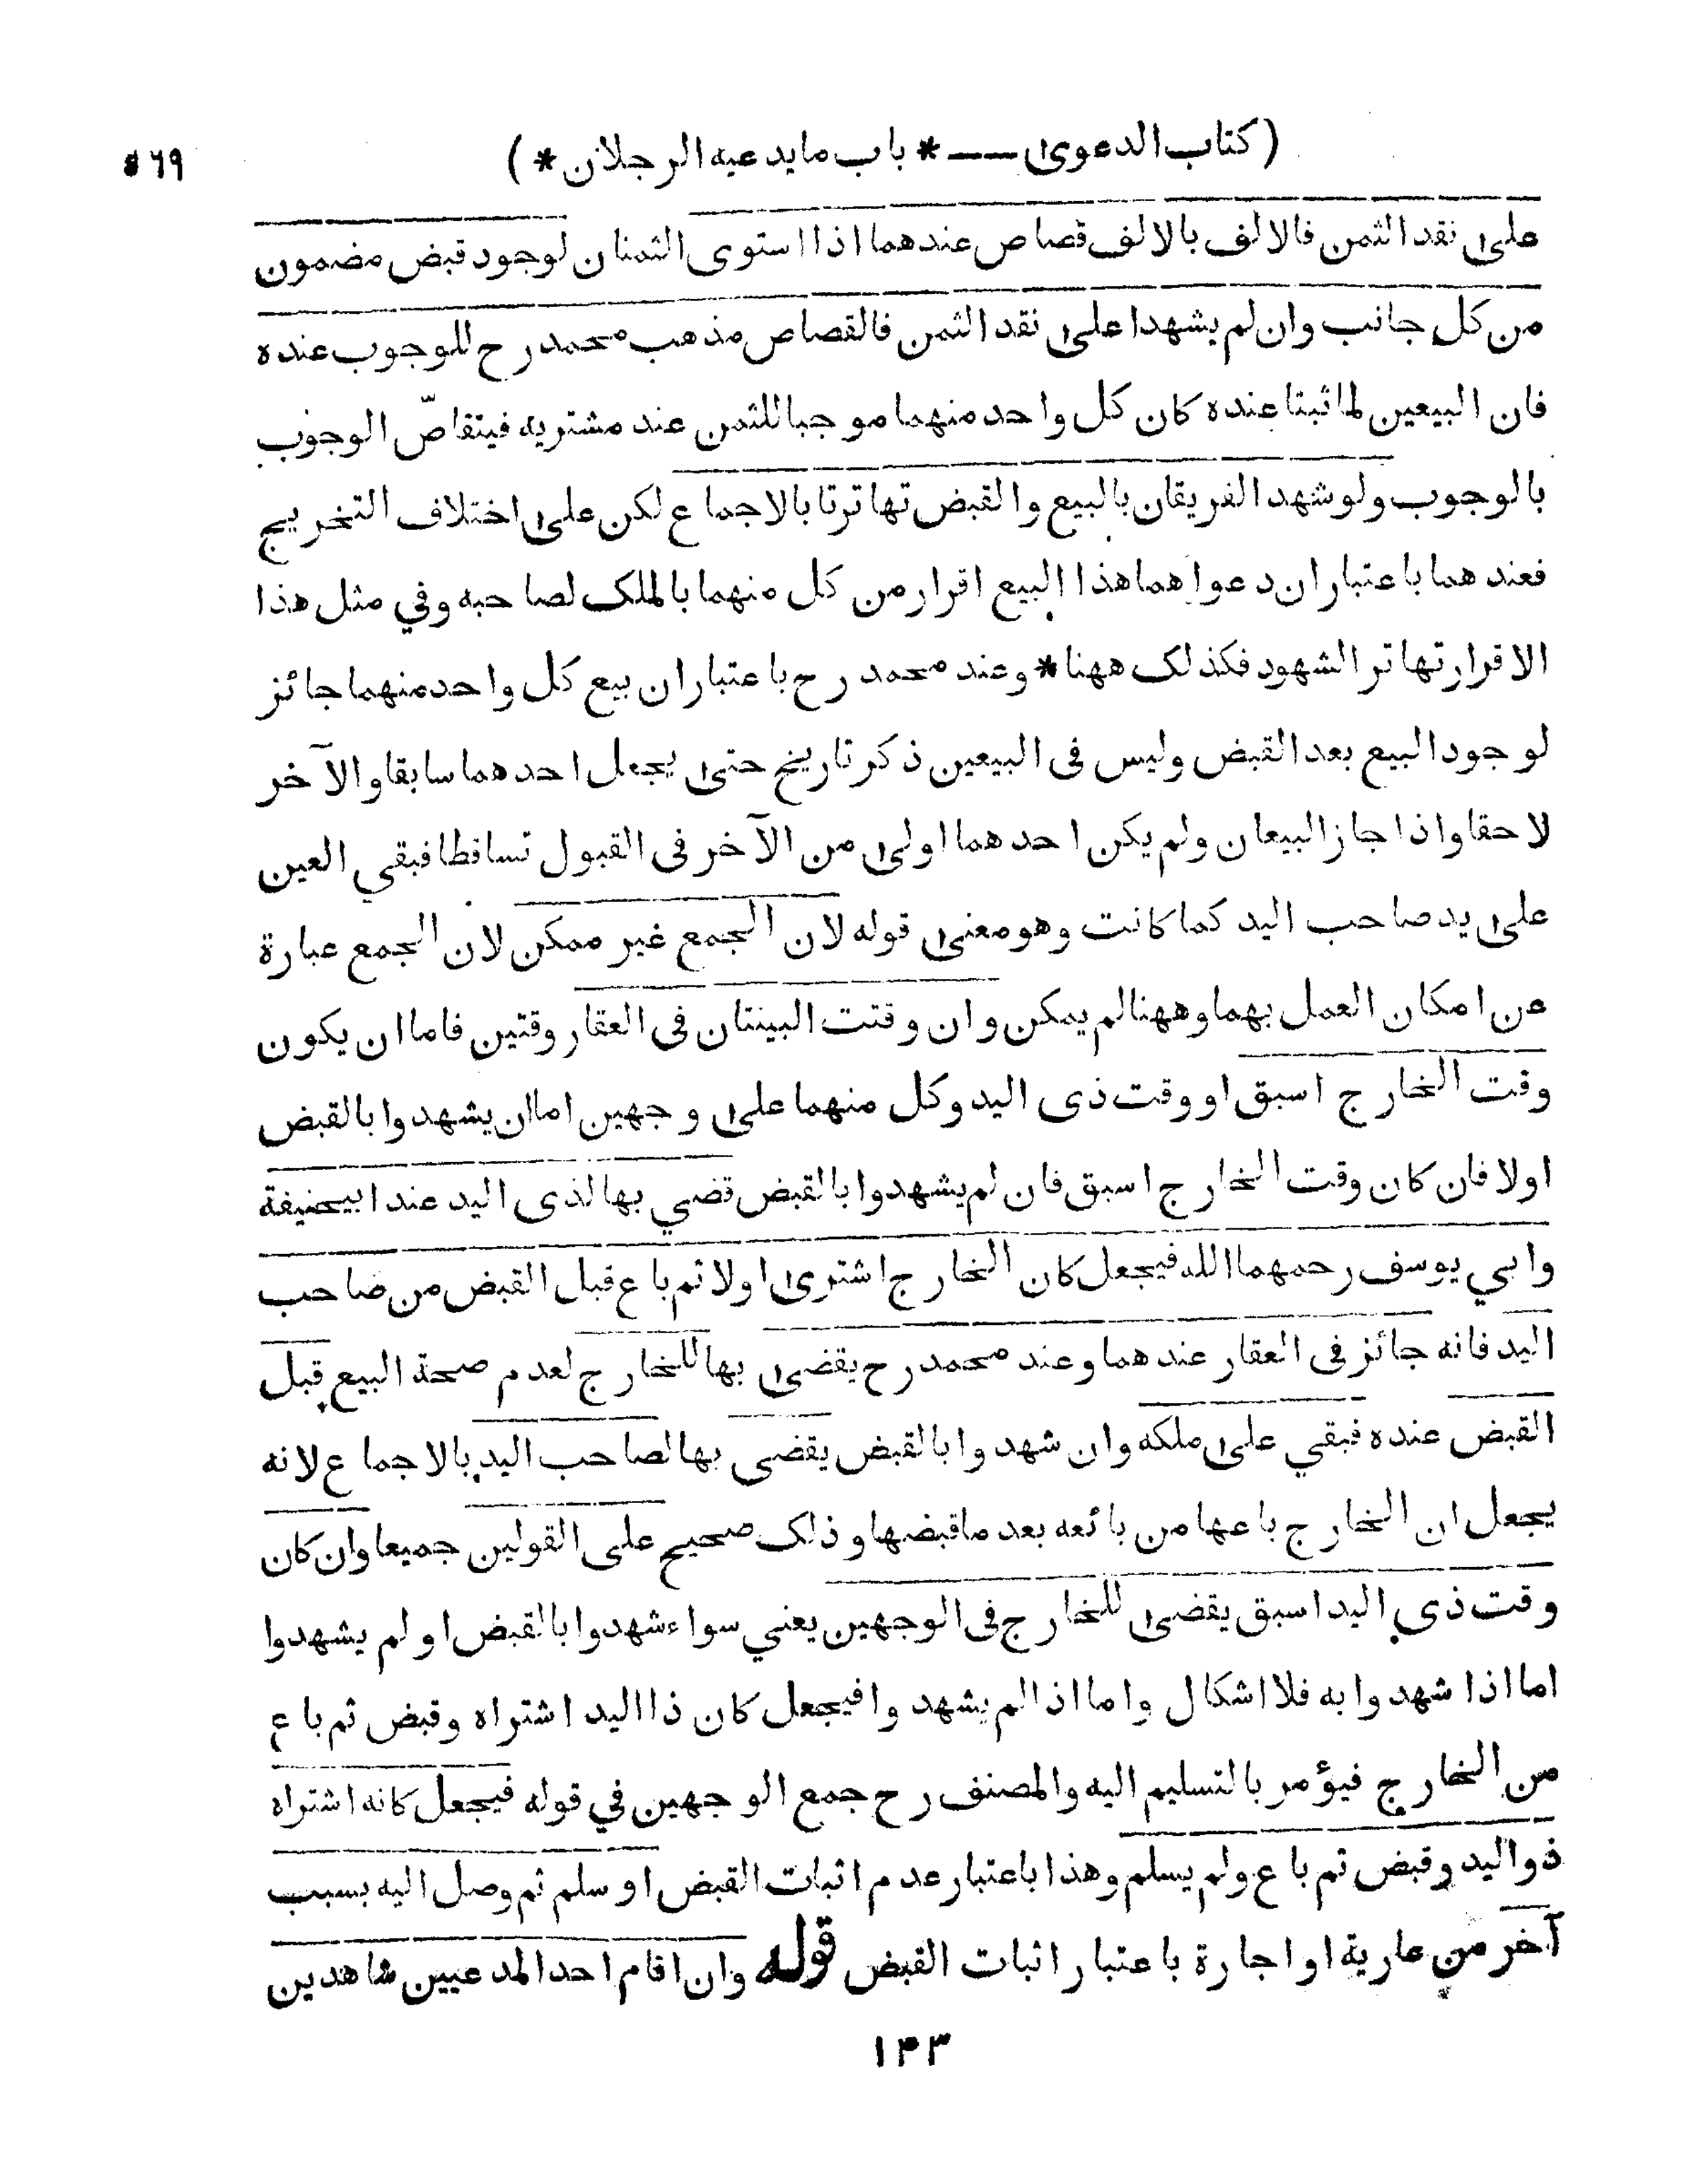 (كتاب الدعوى —— * باب ما يدعيه الرجلان *)
على نقد الثمن فالالف بالالف قصاص عندهما اذا استوى الثمنان لوجود قبض مضمون
من كل جانب وان لم يشهدا على نقد الثمن فالقصاص مذهب محمد رح للوجوب عنده
فان البيعين لما ثبتا عنده كان كل واحد منهما موجبا للثمن عند مشتريه فيتقاصّ الوجوب
بالوجوب ولو شهد الفريقان بالبيع والقبض تهاترتا بالاجماع لكن على اختلاف التخريج
فعندهما باعتبار ان دعواهما هذا البيع اقرار من كل منهما بالملك لصاحبه وفي مثل هذا
الاقرار تهاتر الشهود فكذلك ههنا * وعند محمد رح باعتبار ان بيع كل واحد منهما جائز
لوجود البيع بعد القبض وليس فى البيعين ذكر تاريخ حتى يجعل احدهما سابقا والآخر
لاحقا واذا جاز البيعان ولم يكن احدهما اولى من الآخر فى القبول تساقطا فبقي العين
على يد صاحب اليد كما كانت وهو معنى قوله لان الجمع غير ممكن لان الجمع عبارة
عن امكان العمل بهما وههنا لم يمكن وان وقتت البينتان فى العقار وقتين فاما ان يكون
وقت الخارج اسبق او وقت ذى اليد وكل منهما على وجهين اما ان يشهدوا بالقبض
اولا فان كان وقت الخارج اسبق فان لم يشهدوا بالقبض قضي بها لذى اليد عند ابيحنيفة
وابي يوسف رحمهما الله فيجعل كان الخارج اشترى اولا ثم باع قبل القبض من صاحب
اليد فانه جائز فى العقار عندهما وعند محمد رح يقضى بها للخارج لعدم صحة البيع قبل
القبض عنده فبقي على ملكه وان شهدوا بالقبض يقضى بها لصاحب اليد بالاجماع لانه
يجعل ان الخارج باعها من بائعه بعد ما قبضها وذلك صحيح على القولين جميعا وان كان
وقت ذى اليد اسبق يقضى للخارج فى الوجهين يعني سواء شهدوا بالقبض او لم يشهدوا
اما اذا شهدوا به فلا اشكال واما اذا لم يشهدوا فيجعل كان ذا اليد اشتراه وقبض ثم باع
من الخارج فيؤمر بالتسليم اليه والمصنف رح جمع الوجهين في قوله فيجعل كانه اشتراه
ذو اليد وقبض ثم باع ولم يسلم وهذا باعتبار عدم اثبات القبض او سلم ثم وصل اليه بسبب
آخر من عارية او اجارة باعتبار اثبات القبض قوله وان اقام احد المدعيين شاهدين
١٤٣